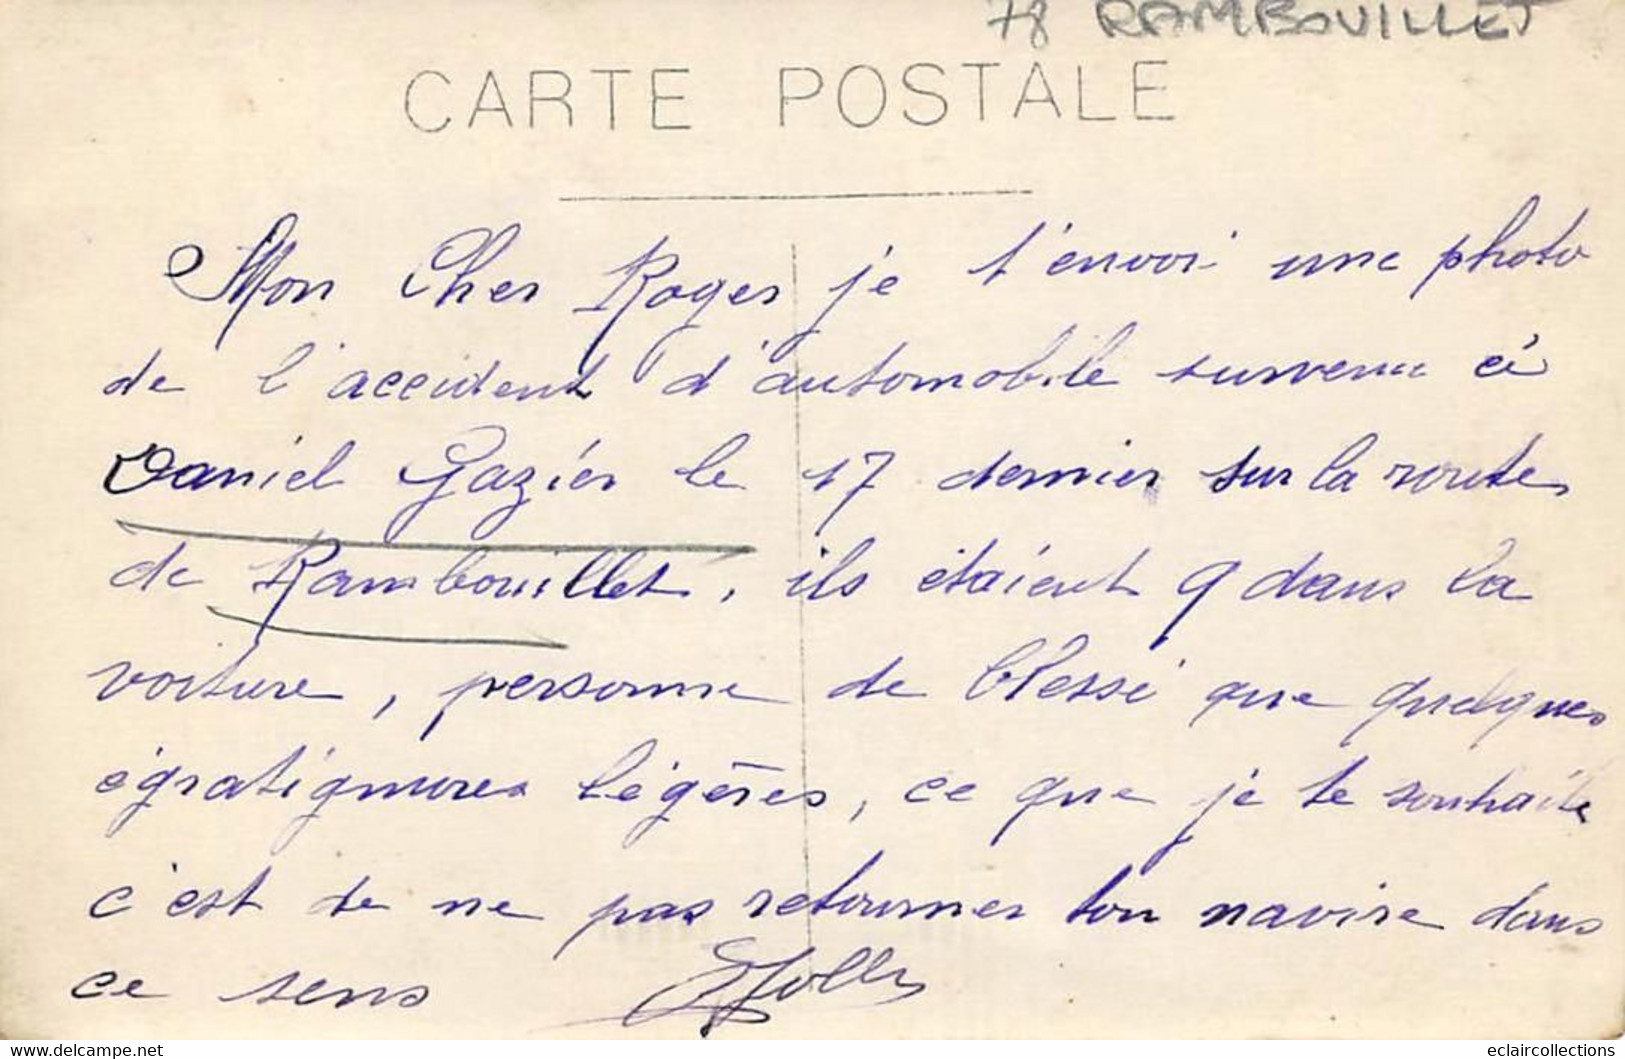 78 RAMBOUILLET
CARTE POSTALE
Mon Cher Roger je t'envoi une photo
de l'accident d'automobile survenu à
Daniel Gazier le 17 dernier sur la route
de Rambouillet, ils étaient 9 dans la
voiture, personne de blessé que quelques
égratignures légères, ce que je te souhaite
c'est de ne pas retourner ton navire dans
ce sens
www.delcampe.net
eclaircollections